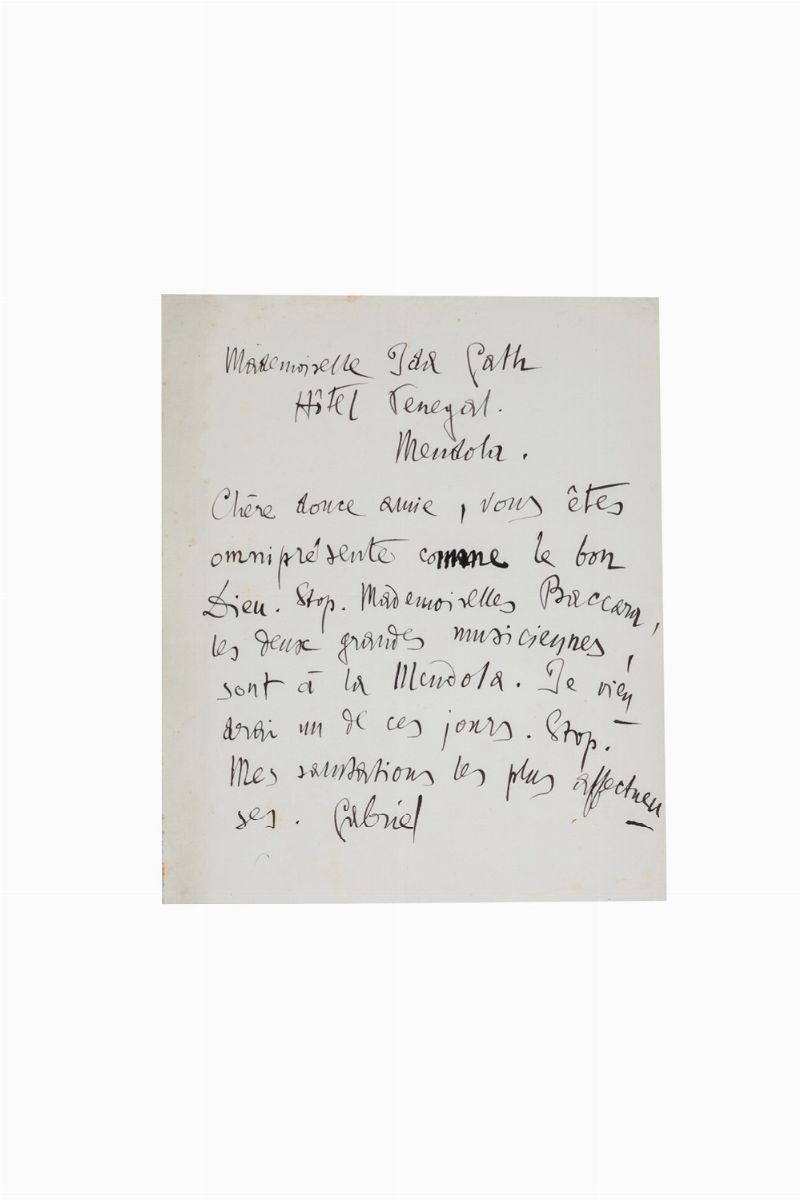 Mademoiselle Ida Gath
Hôtel Penegal.
Mendola.
Chère douce amie, vous êtes
omniprésente comme le bon
Dieu. Stop. Mademoiselles Baccara,
les deux grandes musiciennes,
sont à la Mendola. Je vien
drai un de ces jours. Stop.
Mes salutations les plus affectueu
ses. Gabriel